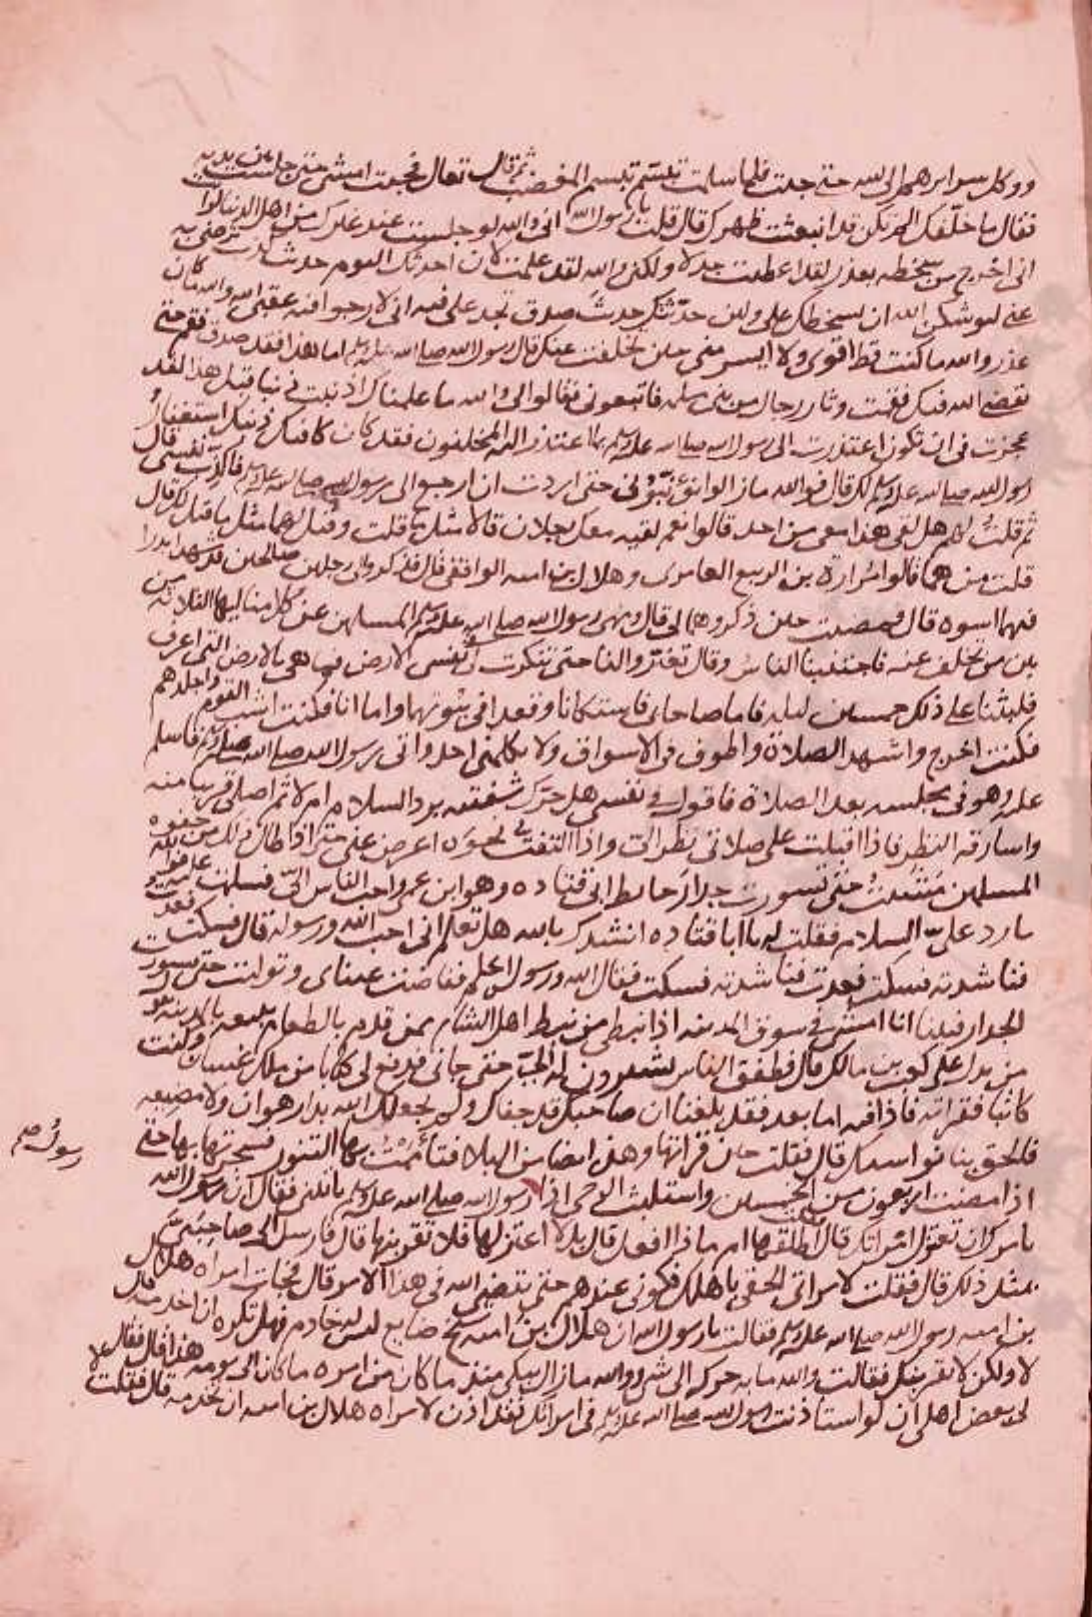 ووكل سرايرهم الى الله حتى جئت فلما سلمت تبسم تبسم المغضب ثم قال تعال فجئت امشي حتى جلست بين يديه
فقال ما خلفك الم تكن قد ابتعت ظهرك قال قلت يا رسول الله اني والله لو جلست عند غيرك من اهل الدنيا لرا
اني اخرج من سخطه بعذر لقد اعطيت جدلا ولكني والله لقد علمت لان احدثك اليوم حديث ترضى به
عني ليوشكن الله ان يسخطك علي ولئن حدثتك حديث صدق تجد علي فيه اني لارجو افيه عقبى الله والله ما كان
عذر والله ما كنت قط اقوى ولا ايسر مني حين تخلفت عنك قال رسول الله صلى الله عليه وسلم اما هذا فقد صدق فقم حتى
يقضي الله فيك فقمت وثار رجال من بني سلمه فاتبعوني فقالوا لي والله ما علمناك اذنبت ذنبا قبل هذا لقد
عجزت في ان تكون اعتذرت الى رسول الله صلى الله عليه وسلم بما اعتذر اليه المخلفون فقد كان كافيك ذنبك استغفار
رسول الله صلى الله عليه وسلم لك قال فوالله ما زالوا يؤنبوني حتى اردت ان ارجع الى رسول الله صلى الله عليه وسلم فاكذب نفسي قال
ثم قلت لهم هل لقي هذا معي من احد قالوا نعم لقيه معك رجلان قالا مثل ما قلت وقيل لهما مثل ما قيل لك قال
قلت من هما قالوا مرارة بن الربيع العامري وهلال بن اميه الواقفي قال فذكروا لي رجلين صالحين قد شهدا بدرا
فيهما اسوه قال فمضيت حين ذكروهما لي قال ونهى رسول الله صلى الله عليه وسلم المسلمين عن كلامنا ايها الثلاثه من
بين من تخلف عنه فاجتنبنا الناس وقال تغيروا لنا حتى تنكرت لي في نفسي الارض فما هي بالارض التي اعرف
فلبثنا على ذلك خمسين ليله فاما صاحباي فاستكانا وقعدا في بيوتهما واما انا فكنت اشب القوم واجلدهم
فكنت اخرج واشهد الصلاة واطوف في الاسواق ولا يكلمني احد واتي رسول الله صلى الله عليه وسلم فاسلم
عليه وهو في مجلسه بعد الصلاة فاقول في نفسي هل حرك شفتيه برد السلام ام لا ثم اصلي قريبا منه
واسارقه النظر فاذا اقبلت على صلاتي نظر الي واذا التفت نحوه اعرض عني حتى اذا طال ذلك من جفوه
المسلمين مشيت حتى تسورت جدار حايط ابي قتاده وهو ابن عمي واحب الناس الي فسلمت عليه فوالله
ما رد علي السلام فقلت له يا ابا قتاده انشدك بالله هل تعلم اني احب الله ورسوله قال فسكت فعدت
فناشدته فسكت فعدت فناشدته فسكت فقال الله ورسوله اعلم ففاضت عيناي وتوليت حتى تسورت
الجدار فبينا انا امشي في سوق المدينه اذا نبطي من نبط اهل الشام ممن قدم بالطعام يبيعه بالمدينه يقول
من يدل على كعب بن مالك قال فطفق الناس يشيرون له الي حتى جاني فدفع لي كتابا من ملك غسان وكنت
كاتبا فقراته فاذا فيه اما بعد فقد بلغنا ان صاحبك قد جفاك ولم يجعلك الله بدار هوان ولا مضيعه
فالحق بنا نواسيك قال فقلت حين قراتها وهذه ايضا من البلا فتاممت بها التنور فسجرتها بها حتى
اذا مضت اربعون من الخمسين واستلبث الوحي اذا رسول رسول الله صلى الله عليه وسلم ياتيني فقال ان رسول الله
يامرك ان تعتزل امراتك قال فقلت اطلقها ام ماذا افعل قال بل اعتزلها فلا تقربنها قال فارسل الى صاحبي
بمثل ذلك قال فقلت لامراتي الحقي باهلك فكوني عندهم حتى يقضي الله في هذا الامر قال فجات امراه هلال
بن اميه رسول الله صلى الله عليه وسلم فقالت يا رسول الله ان هلال بن اميه شيخ ضايع ليس له خادم فهل تكره ان اخدمه قال
لا ولكن لا يقربنك فقالت والله ما به حركه الى شي ووالله ما زال يبكي منذ ما كان من امره ما كان الى يومه هذا قال فقال
لي بعض اهلي ان لو استاذنت رسول الله صلى الله عليه وسلم في امراتك فقد اذن لامراه هلال بن اميه ان تخدمه قال فقلت
رسول صح